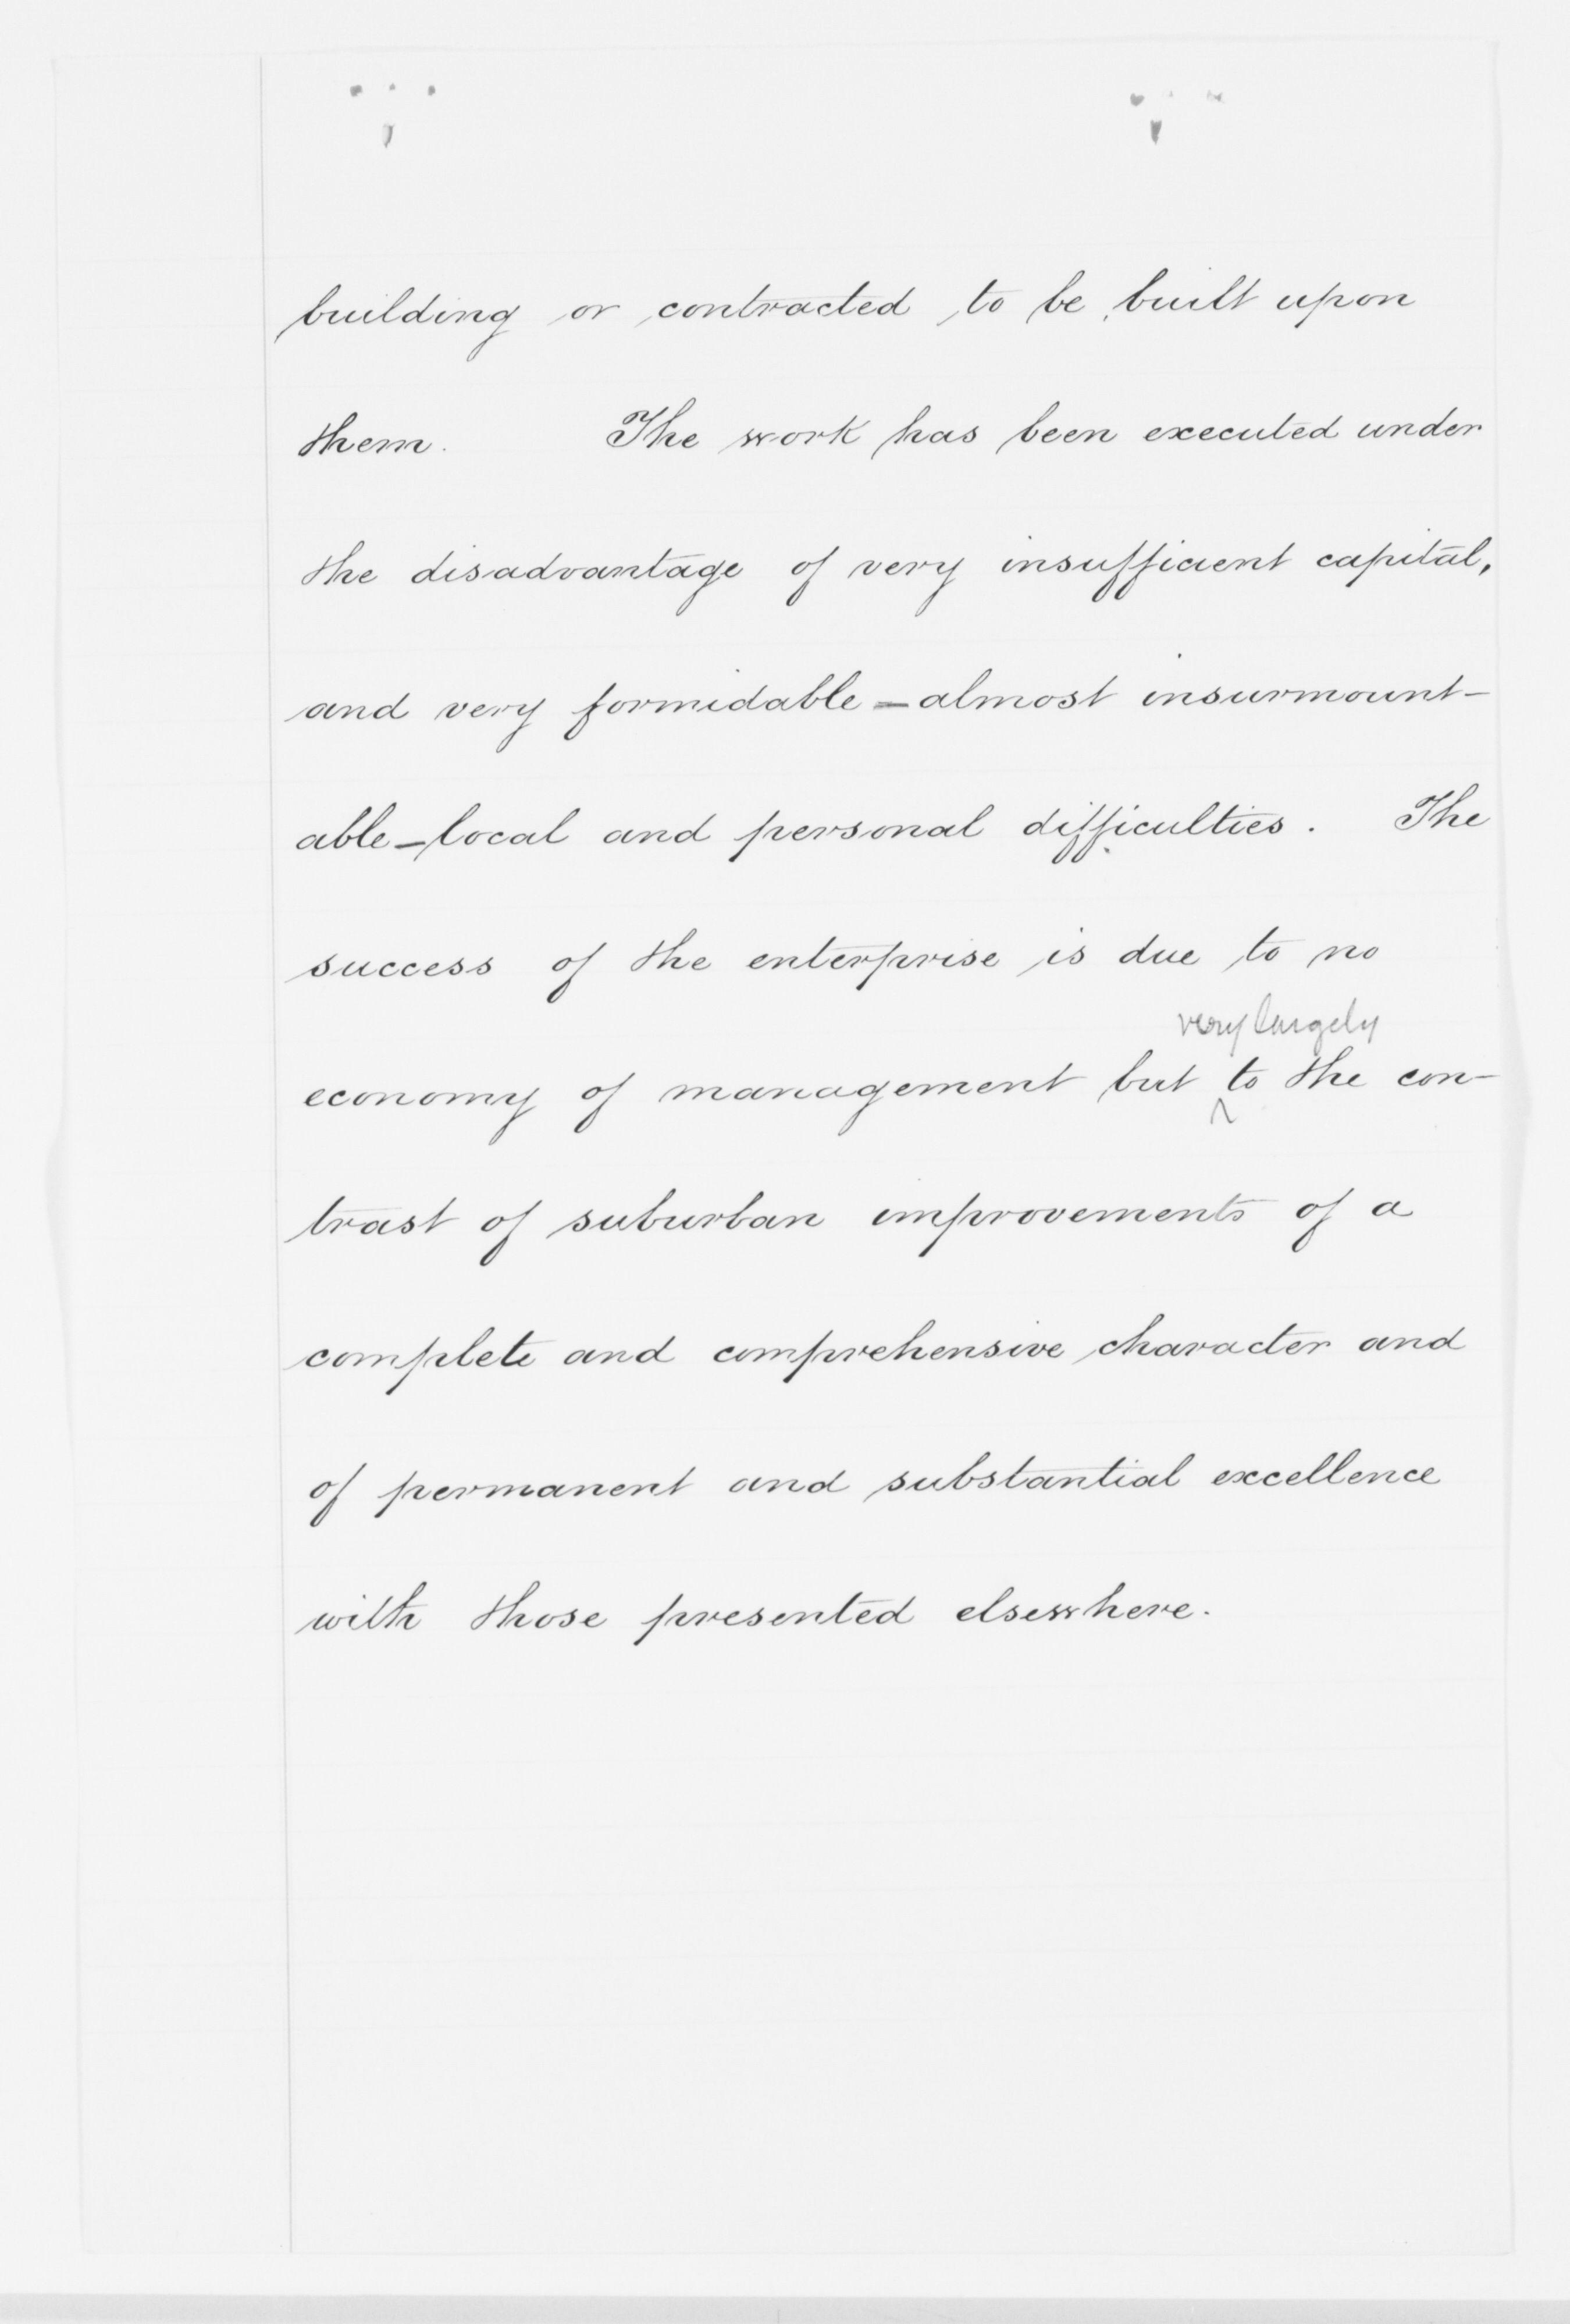 building or contracted to be built upon
them. The work has been executed under
the disadvantage of very insufficient capital,
and very formidable - almost insurmount-
able - local and personal difficulties. The
success of the enterprise is due to no
very largely
economy of management but ^ to the con-
trast of suburban improvements of a
complete and comprehensive character and
of permanent and substantial excellence
with those presented elsewhere.